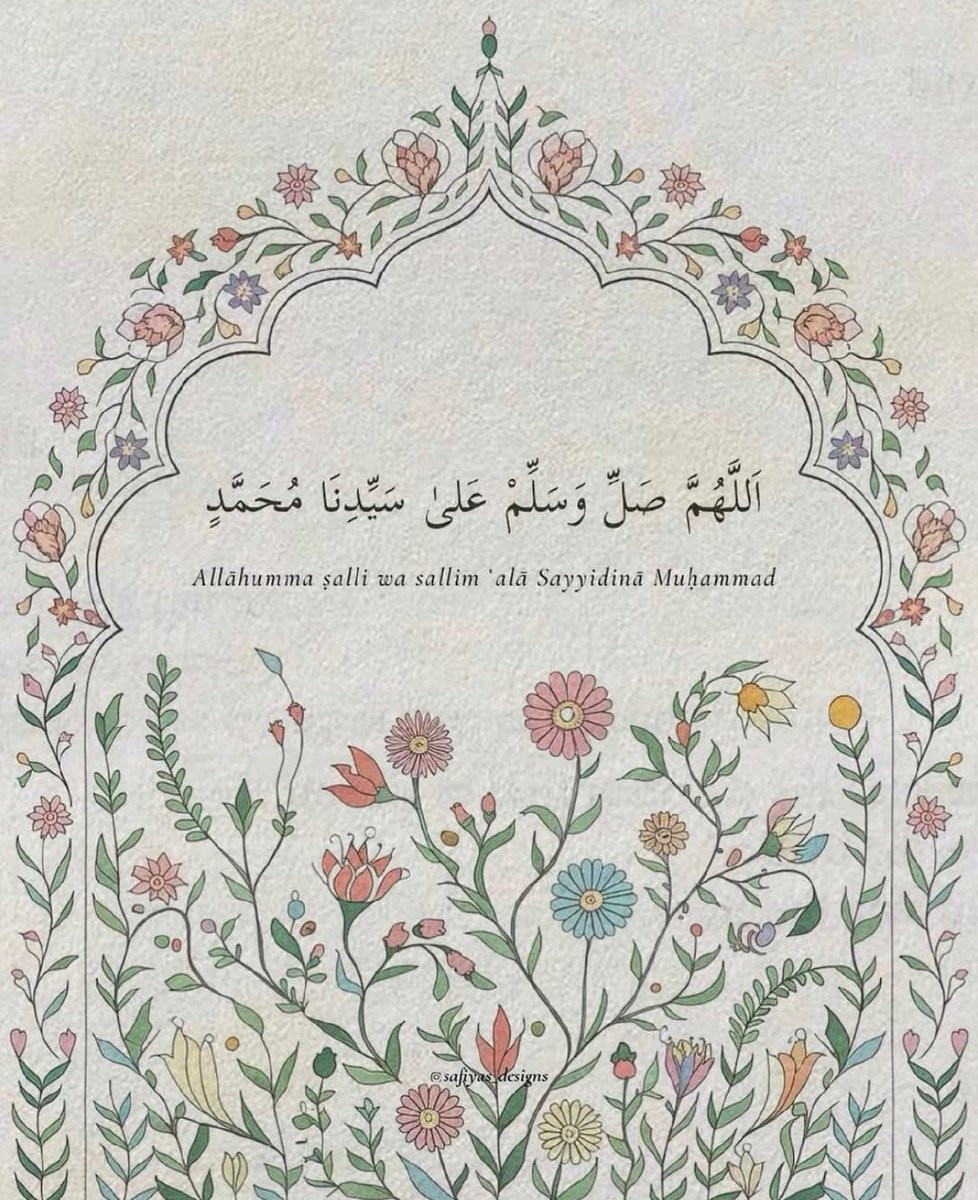 اَللَّهُمَّ صَلِّ وَسَلِّمْ عَلىٰ سَيِّدِنَا مُحَمَّدٍ
Allāhumma ṣalli wa sallim ʿalā Sayyidinā Muḥammad
@safiyas_designs